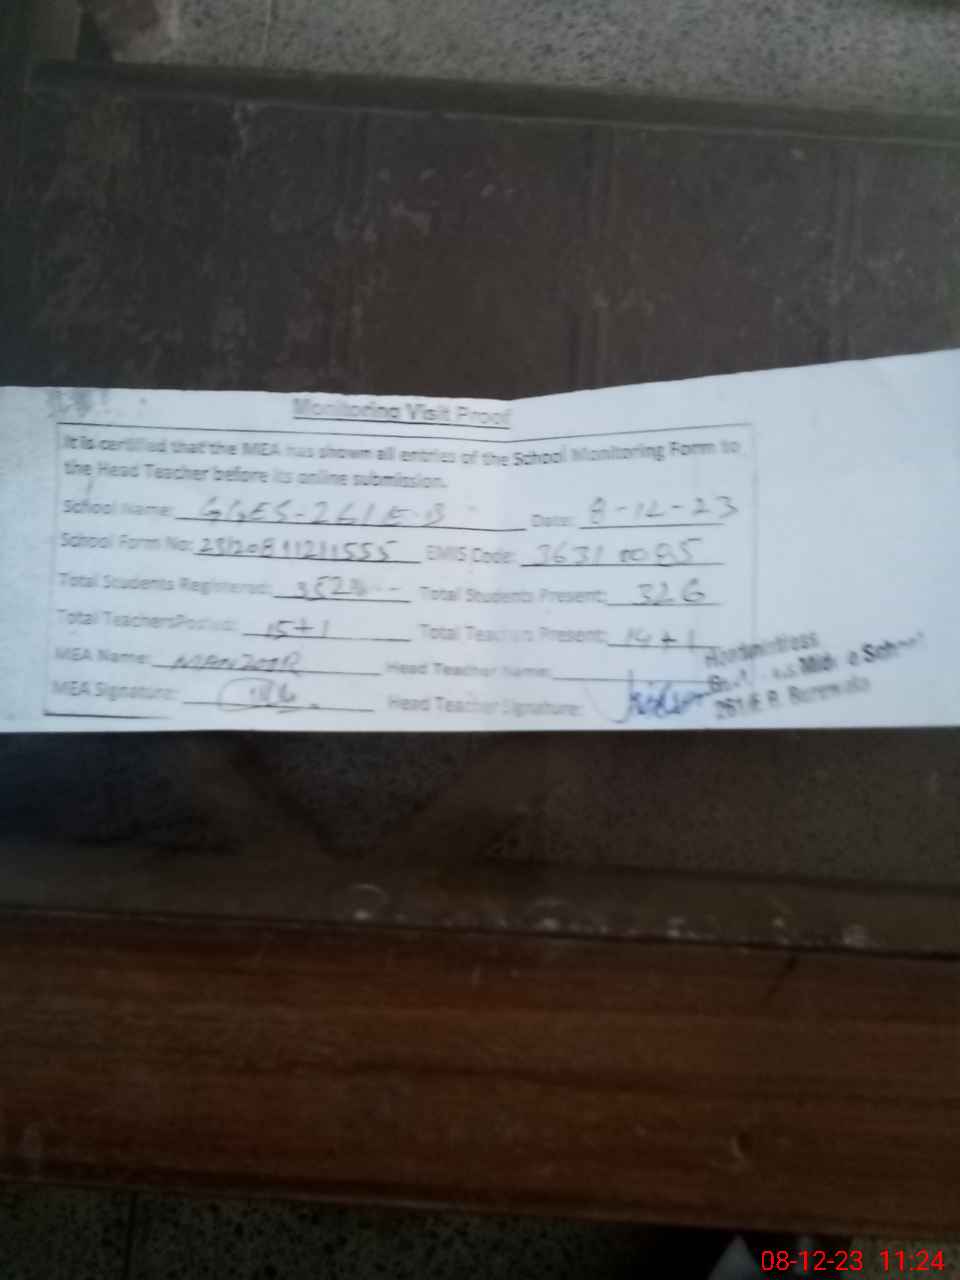 Monitoring Visit Proof
It is certified that the MEA has shown all entries of the School Monitoring Form to
the Head Teacher before its online submission.
School Name: Date: 8-12-23
School Form No: EMIS Code: 36310085
Total Students Registered: Total Students Present: 326
Total Teachers Posted: 15+1 Total Teachers Present: 14+1
MEA Name: Head Teacher Name:
MEA Signature: Head Teacher Signature:
Headmistress
School
08-12-23 11:24